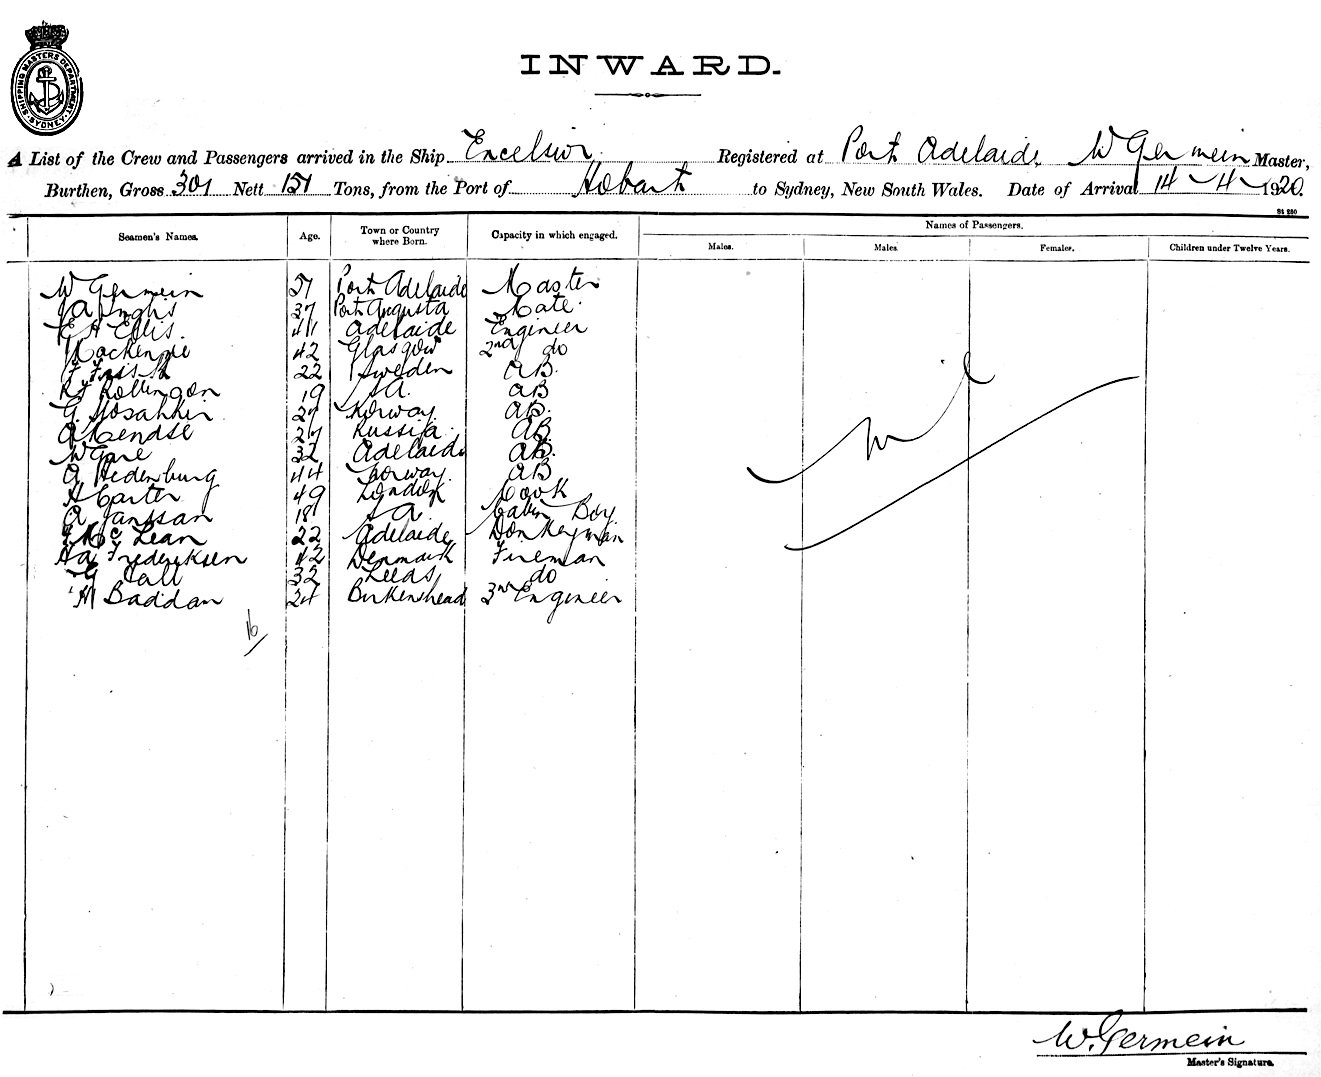 SHIPPING MASTERS DEPARTMENT SYDNEY
INWARD.
A List of the Crew and Passengers arrived in the Ship Excelsior Registered at Port Adelaide W Germein Master,
Burthen, Gross 301 Nett 151 Tons, from the Port of Hobart to Sydney, New South Wales. Date of Arrival 14-4-1920.
St 250
Seamen's Names. Age. Town or Country where Born. Capacity in which engaged. Names of Passengers.
Males. Males. Females. Children under Twelve Years.
W Germein 51 Port Adelaide Master
37 Port Augusta Mate
E A Ellis 41 Adelaide Engineer
Mackenzie 42 Glasgow 2nd do
F 22 Sweden AB
19 SA. AB
G 27 Norway AB.
A 27 Russia AB
W Gare 32 Adelaide AB.
A Hedenburg 44 Norway AB
H Carter 49 London Cook
A Janssan 18 S A. Cabin Boy
Mc Lean 22 Adelaide Donkeyman
Frederiksen 42 Denmark Fireman
G Call 32 Leeds do
H Baddan 24 Birkenhead 3rd Engineer
16
Nil
W. Germein
Master's Signature.